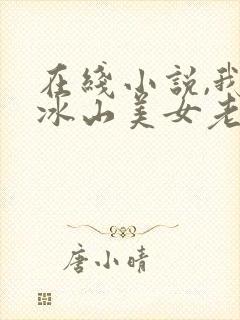 在线小说,我
冰山美女老
唐小晴